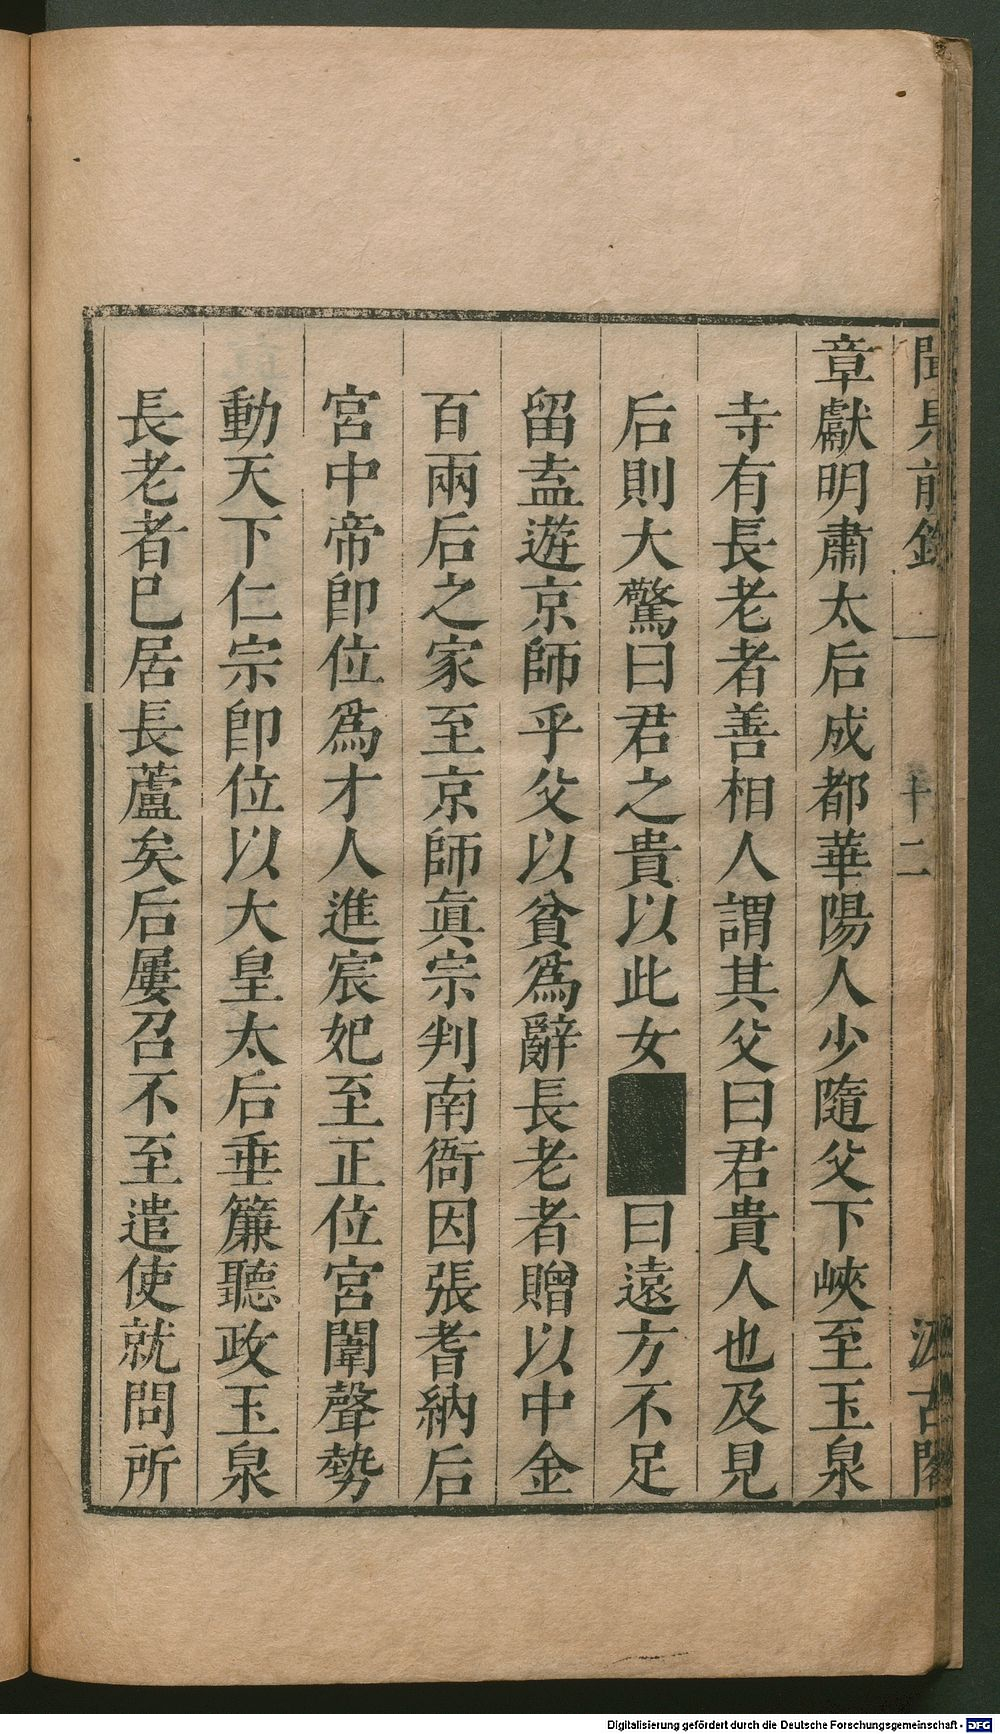 聞見前錄 一 十二 汲古閣
章獻明肅太后成都華陽人少隨父下峽至玉泉
寺有長老者善相人謂其父曰君貴人也及見
后則大驚曰君之貴以此女曰遠方不足
留盍遊京師乎父以貧爲辭長老者贈以中金
百兩后之家至京師眞宗判南衙因張耆納后
宮中帝卽位爲才人進宸妃至正位宮闈聲勢
動天下仁宗卽位以大皇太后垂簾聽政玉泉
長老者已居長蘆矣后屢召不至遣使就問所
Digitalisierung gefördert durch die Deutsche Forschungsgemeinschaft - DFG